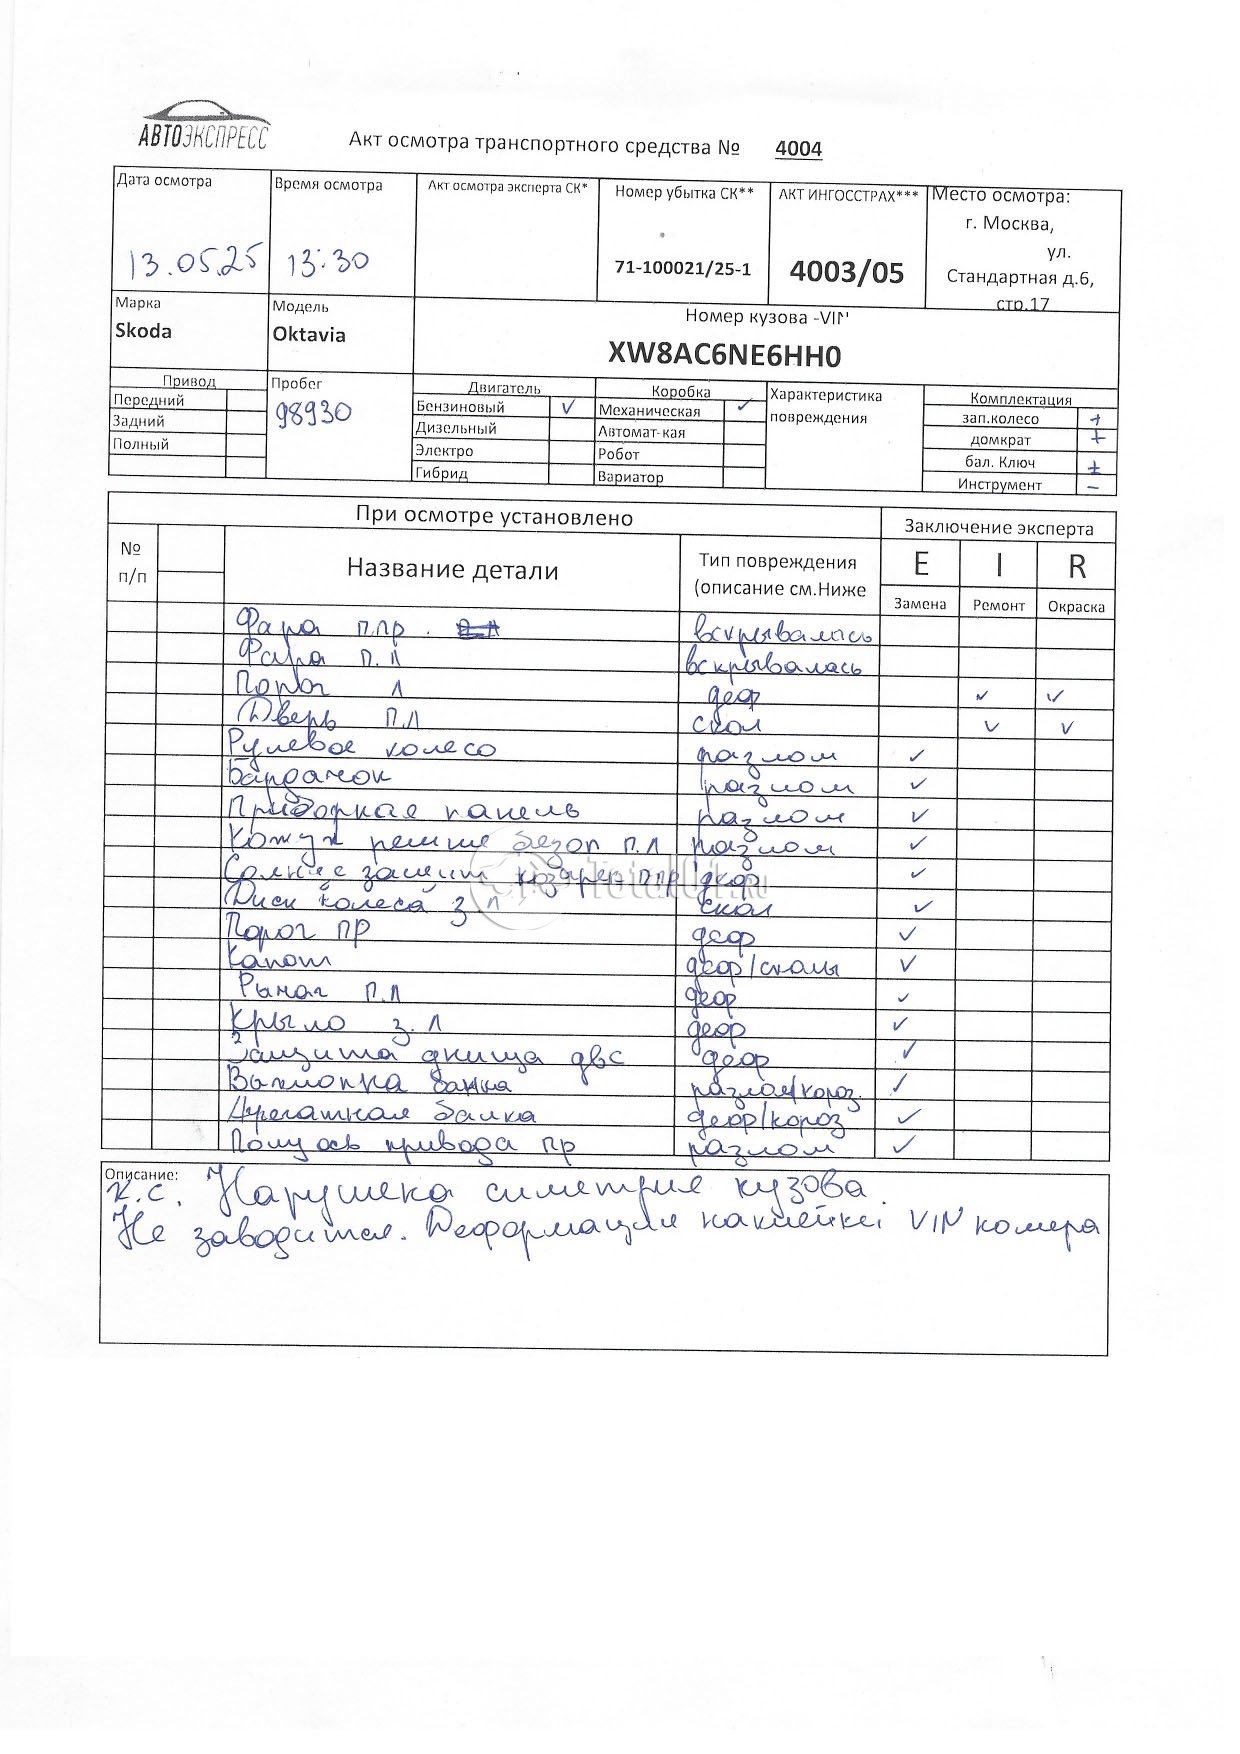 АВТОЭКСПРЕСС
Акт осмотра транспортного средства № 4004
Дата осмотра
13.05.25
Время осмотра
13:30
Акт осмотра эксперта СК*
Номер убытка СК**
71-100021/25-1
АКТ ИНГОССТРАХ***
4003/05
Место осмотра:
г. Москва,
ул.
Стандартная д.6,
стр.17
Марка
Skoda
Модель
Oktavia
Номер кузова -VIN
XW8AC6NE6HH0
Привод
Передний
Задний
Полный
Пробег
98930
Двигатель
Бензиновый ✓
Дизельный
Электро
Гибрид
Коробка
Механическая ✓
Автомат-кая
Робот
Вариатор
Характеристика
повреждения
Комплектация
зап.колесо +
домкрат +
бал. Ключ +
Инструмент –
При осмотре установлено
Заключение эксперта
№
п/п
Название детали
Тип повреждения
(описание см.Ниже
E I R
Замена Ремонт Окраска
Фара п.пр. вскрывалась
Фара п.л вскрывалась
Порог л деф ✓ ✓
Дверь п.л скол ✓ ✓
Рулевое колесо разлом ✓
Бардачок разлом ✓
Приборная панель разлом ✓
Кожух ремня безоп п.л разлом ✓
Солнце защит козырек ппр деф ✓
Диск колеса з л скол ✓
Порог пр деф ✓
Капот деф/сколы ✓
Рычаг п.л деф ✓
Крыло з.л деф ✓
Защита днища двс деф ✓
Выхлопная банка разлом/короз. ✓
Агрегатная балка деф/короз ✓
Полуось привода пр разлом ✓
Total01.RU
Описание:
к.с. Нарушена симетрия кузова.
Не заводится. Деформация наклейки VIN номера